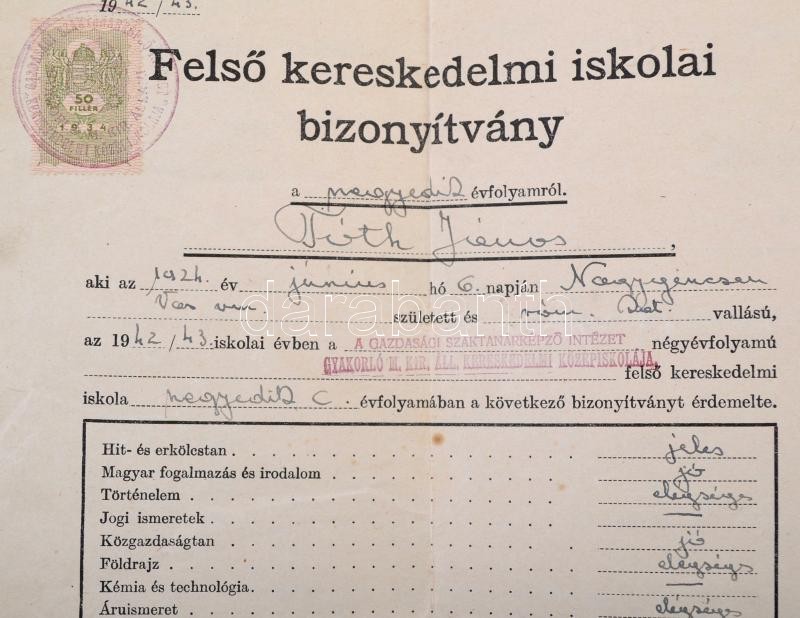 1942/43.
50
FILLÉR
1934
Felső kereskedelmi iskolai
bizonyítvány
a negyedik évfolyamról.
Tóth János,
aki az 1924. év június hó 6. napján Nagygencsen
Vas vm. született és róm. kat. vallású,
az 1942/43. iskolai évben a A GAZDASÁGI SZAKTANÁRKÉPZŐ INTÉZET négyévfolyamú
GYAKORLÓ M. KIR. ÁLL. KERESKEDELMI KÖZÉPISKOLÁJA, felső kereskedelmi
iskola negyedik C. évfolyamában a következő bizonyítványt érdemelte.
Hit- és erkölcstan jeles
Magyar fogalmazás és irodalom jó
Történelem elégséges
Jogi ismeretek —
Közgazdaságtan jó
Földrajz elégségs
Kémia és technológia —
Áruismeret elégséges
darabanth